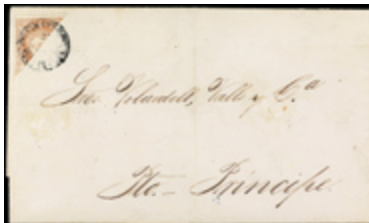 Sres. Vilardell, Valls y C.ª
Pto. - Príncipe